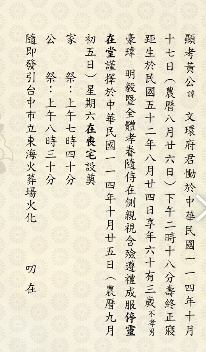 顯考黃公諱　文環府君慟於中華民國一一四年十月
十七日（農曆八月廿六日）下午二時十八分壽終正寢
距生於民國五十二年八月廿四日享年六十有三歲不孝男
豪瑋　明毅暨全體孝眷隨侍在側親視含殮遵禮成服停靈
在堂謹擇於中華民國一一四年十月廿五日（農曆九月
初五日）星期六在喪宅設奠
家　祭：上午七時四十分
公　祭：上午八時三十分
隨即發引台中市立東海火葬場火化
叨在